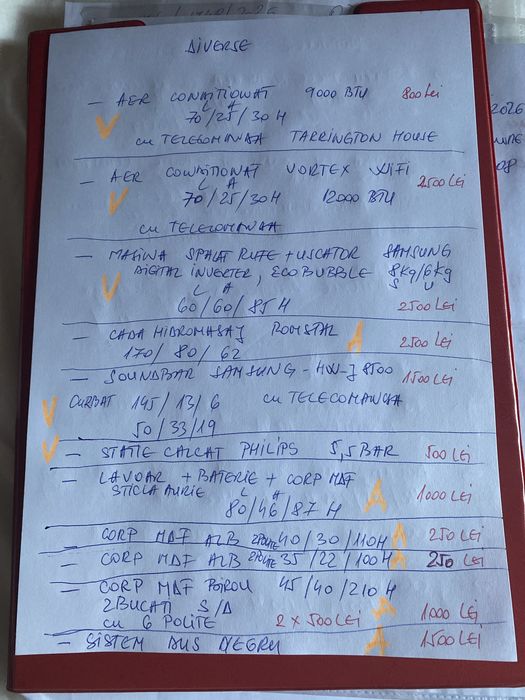 DIVERSE
— AER CONDITIONAT 9000 BTU 800 Lei
L A
70/25/30 H
V
cu TELECOMANDA TARRINGTON HOUSE
— AER CONDITIONAT VORTEX WIFI
2500 LEI
L A
70/25/30 H 12000 BTU
V
cu TELECOMANDA
— MASINA SPALAT RUFE + USCATOR SAMSUNG
DIGITAL INVERTER, ECOBUBBLE 8kg/6kg
V L A S U
60/60/85 H 2500 LEI
— CADA HIDROMASAJ ROMSTAL A 2500 LEI
170/80/62
— SOUNDBAR SAMSUNG - HW-J 8500 1500 LEI
V CURBAT 145/13/6 cu TELECOMANDA
50/33/19
V — STATIE CALCAT PHILIPS 5,5 BAR 500 LEI
— LAVOAR + BATERIE + CORP MDF
STICLA AURIE L A A 1000 LEI
80/46/87 H
— CORP MDF ALB 2 POLITE 40/30/110H A 250 LEI
— CORP MDF ALB 2 POLITE 35/22/100H A 250 LEI
— CORP MDF 45/40/210 H
2 BUCATI S/D A 1000 LEI
cu 6 POLITE 2 x 500 LEI
— SISTEM DUS NEGRU A 1500 LEI
2026